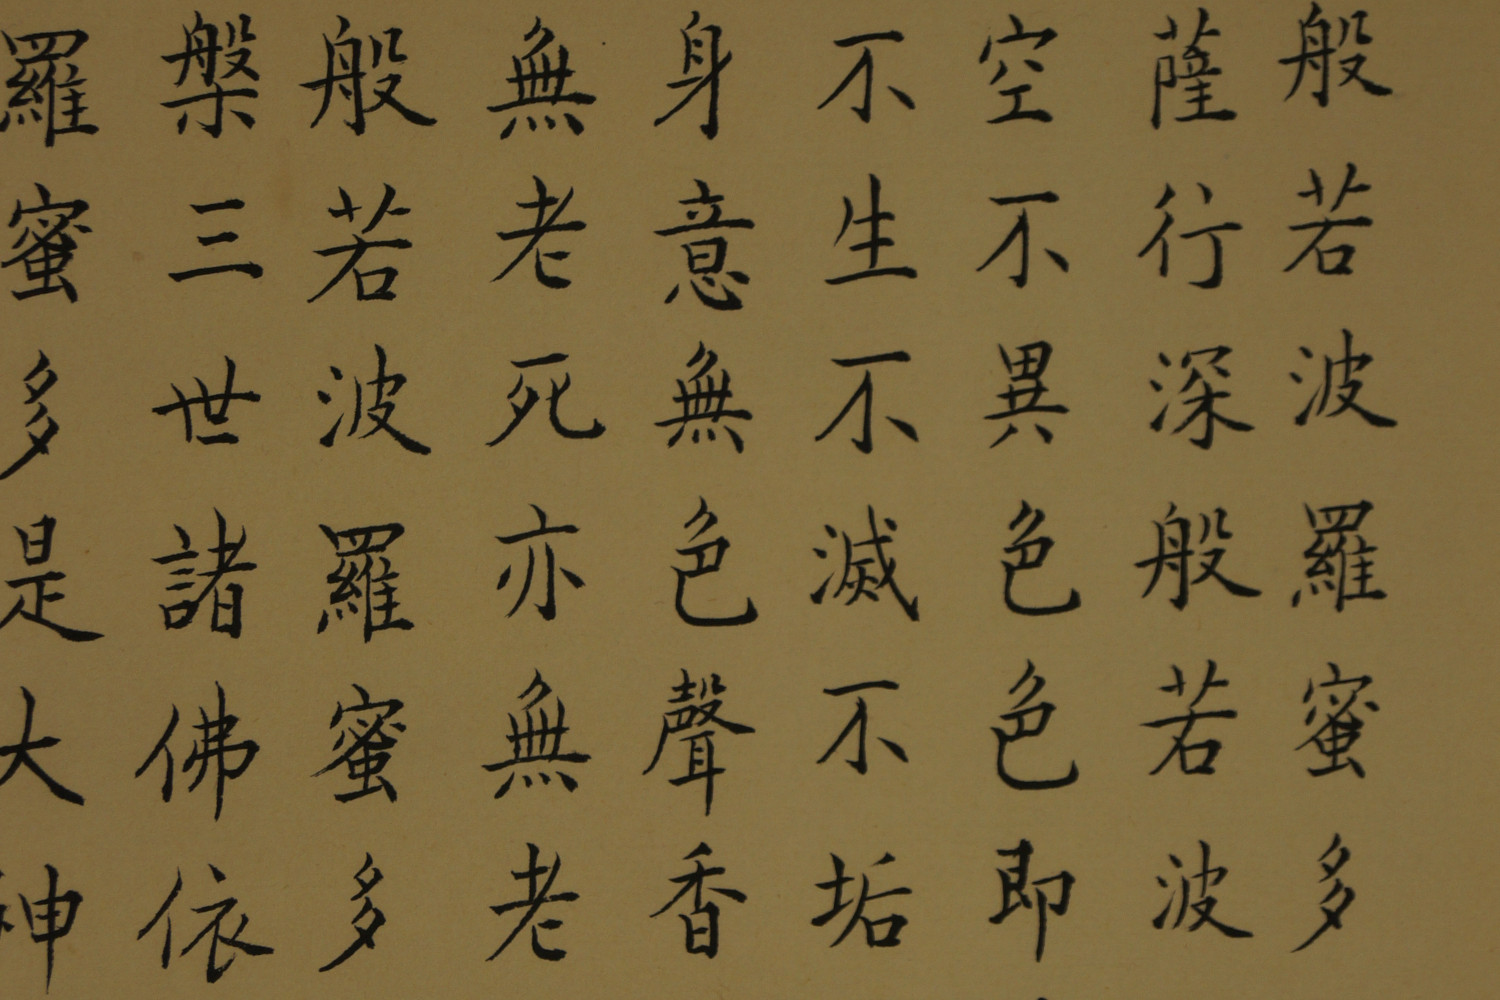 般若波羅蜜多
薩行深般若波
空不異色色即
不生不滅不垢
身意無色聲香
無老死亦無老
般若波羅蜜多
槃三世諸佛依
羅蜜多是大神